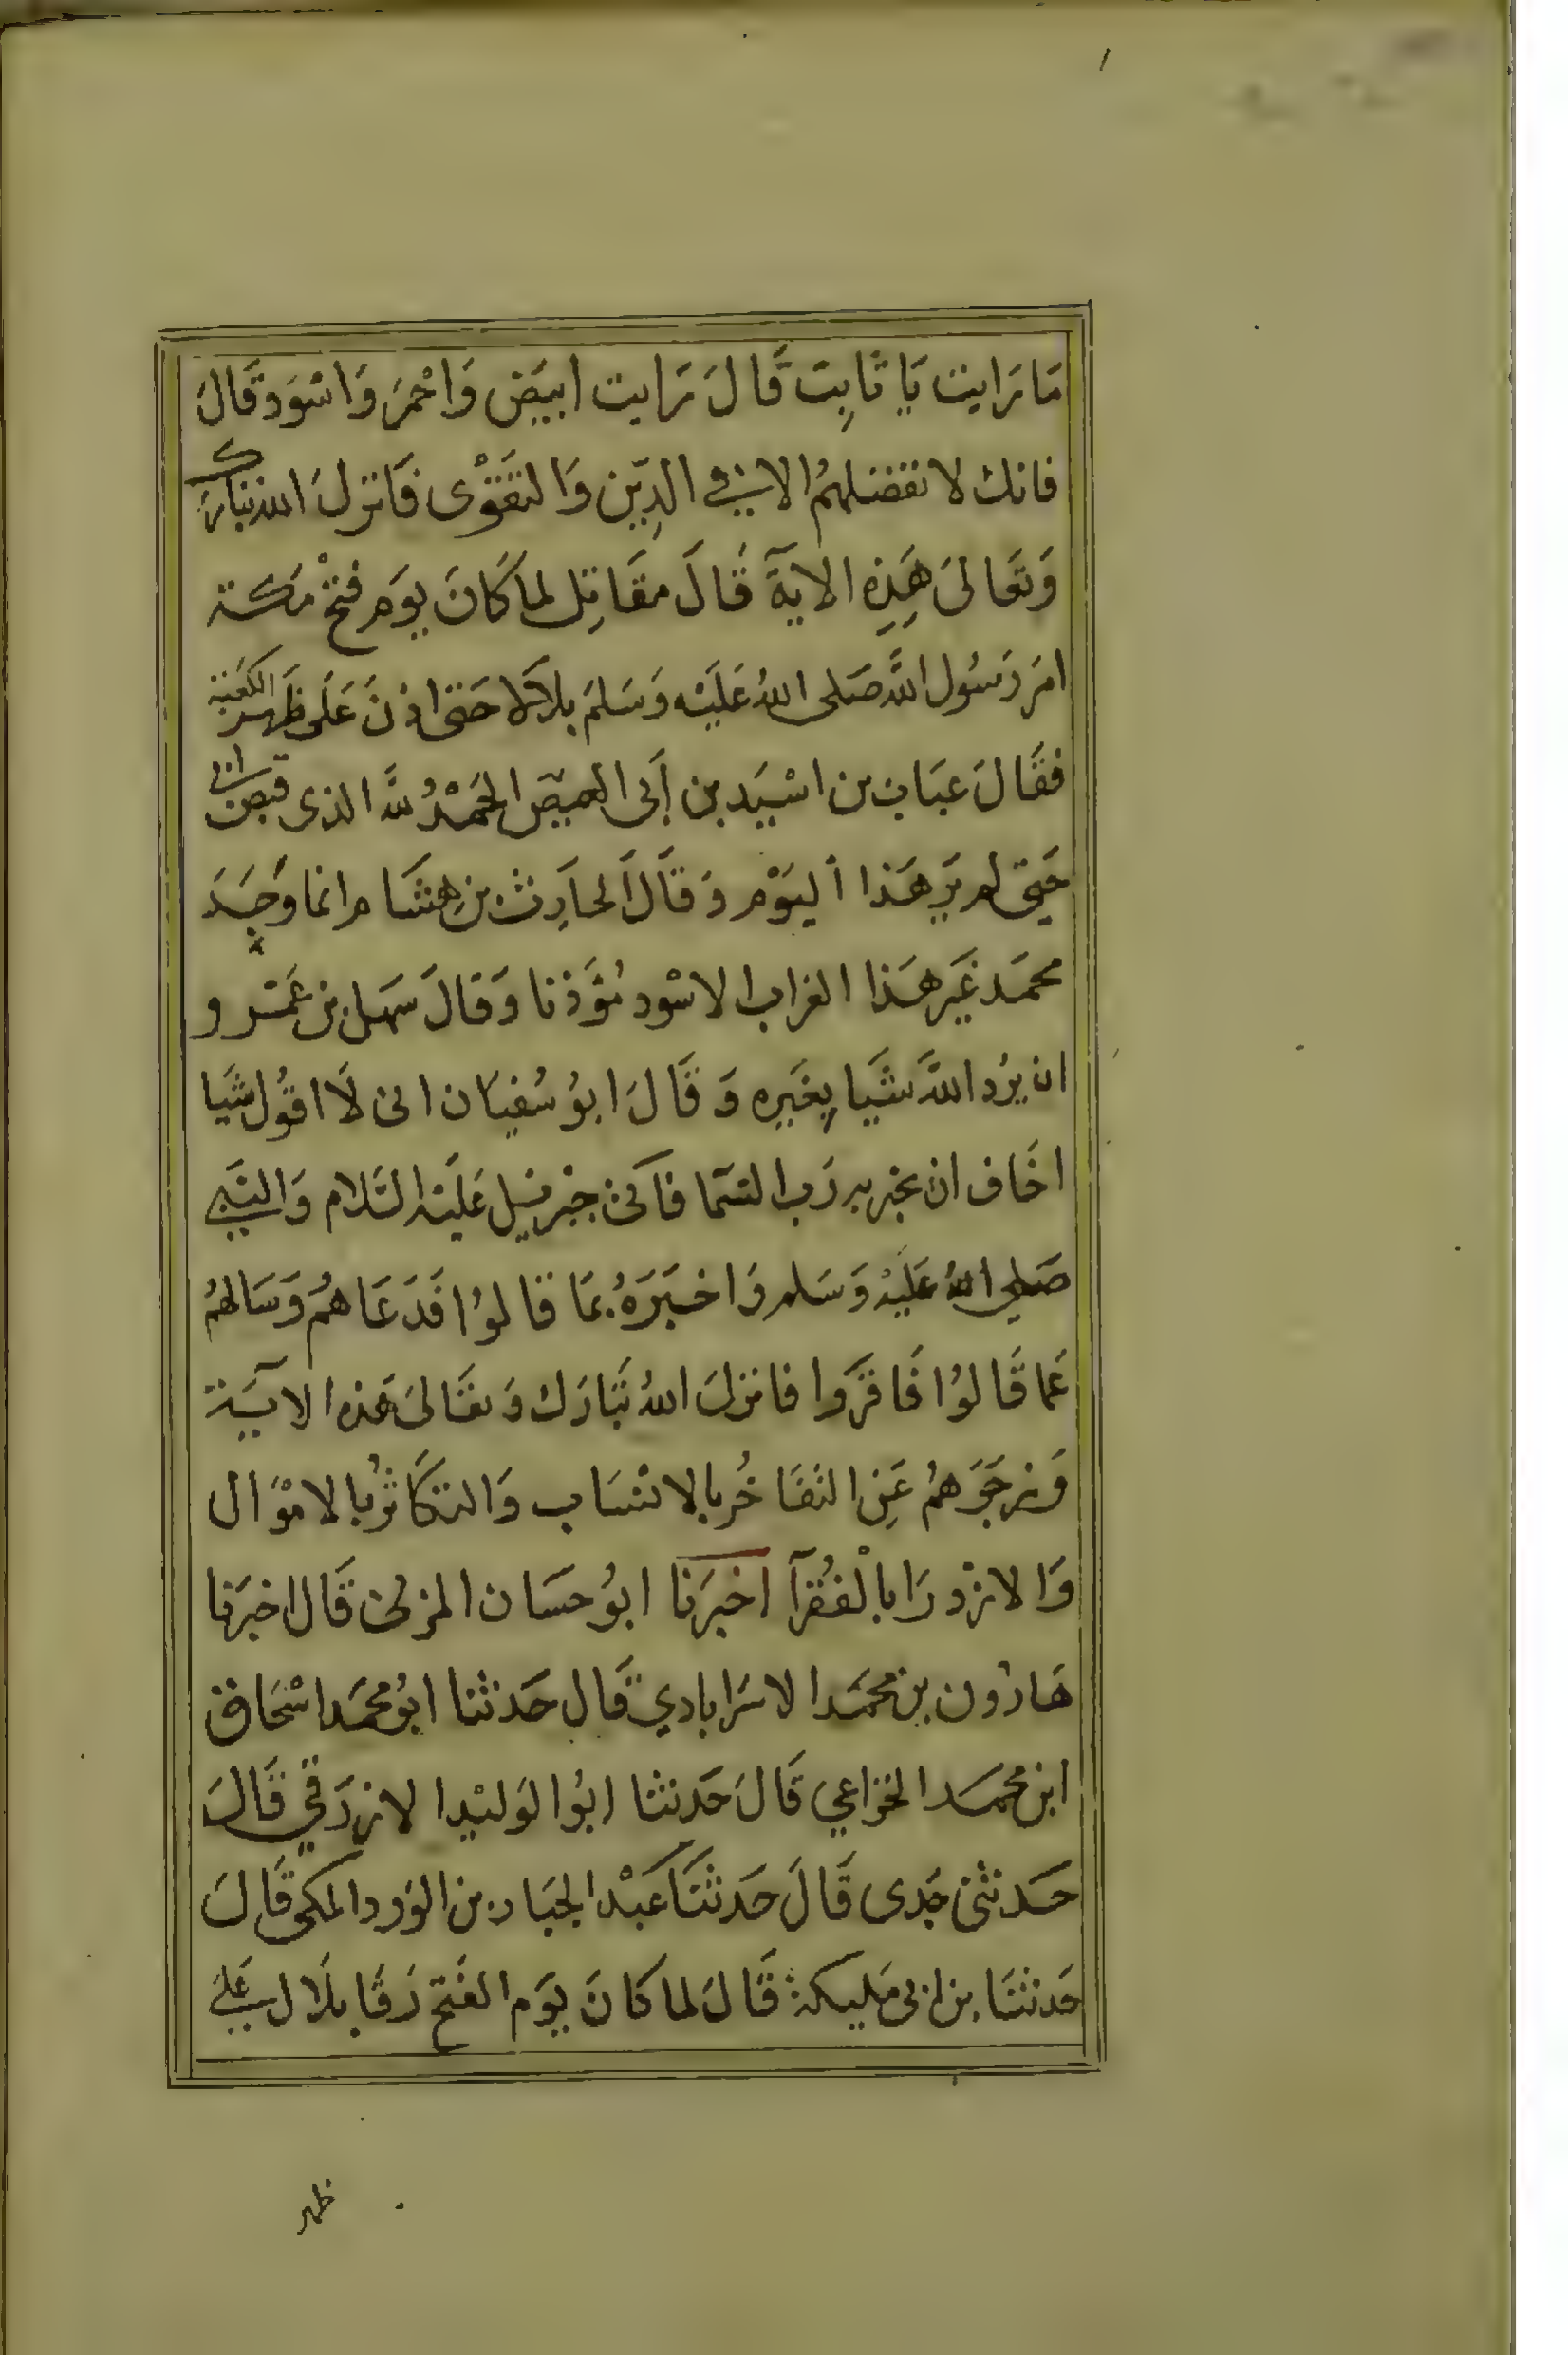 مَا رَايت يَا ثَابِت قَالَ رَايت ابيَض وَاحْمَر وَاسْوَد قَالَ
فانك لا تفضلهمُ الا في الدِّين وَالتقَوْى فَانزلَ الله تبارك
وَتعَالىَ هَذِهِ الايةَ قَالَ مقَاتِل لما كَانَ يوَم فتحْ مَكة
امَر رَسُول اللَّه صَلى اللهُ عَليَه وَسَلمَ بلالا حَتى اذنَ عَلَى ظَهر الكعَبة
فقَالَ عبَاب بن اسْيَد بن أبى العيص الحَمْدُ للَّه الذى قبض ابي
حَتى لم يَر هَذا اليَوْم وَقَالَ الحَارِث بن هِشَام انما وَجَدَ
محمَد غَير هَذا الغراب الاسْود مُؤَذنا وَقالَ سَهَل بن عَمْرو
ان يُرد اللَّه شَيا يغَيِره وَقَالَ ابوُ سُفيَان انى لَا اقوُل شَيا
اخَاف ان يخبر به رَب السَمَا فاتى جبْرئيل عَليَه السَلام وَالنَبي
صَلى اللهُ عَليَهْ وَسَلم وَاخبَرَهُ بمَا قالوُا فَدَعَاهُم وَسَالهُم
عَما قَالوُا فَاقرَوا فانزلَ اللهُ تَبَارَك وَتعَالىَ هَذه الآيَة
وَزجَرَهُم عَن التفَاخُر بالانسَاب وَالتكَاثُر بالامْوَال
وَالازدرَا بالْفُقرآ اخبَرَنا ابوُ حسَان المزكى قَال اخبَرَنا
هَارُون بن محمَد الاسَرابادي قَال حَدثنا ابوُ محمَد اسْحَاق
ابن محمَد الخزاعي قَالَ حَدثنا ابوُا لوَليْد الازرَقي قَالَ
حَدثنى جَدى قَالَ حَدثنَا عَبْد الجبَار بن الوَرد المكى قَالَ
حَدثنَا بن ابى مَليكة قَالَ لما كَانَ يوَم الفَتح رَقَا بلَال عَلى
ظهر